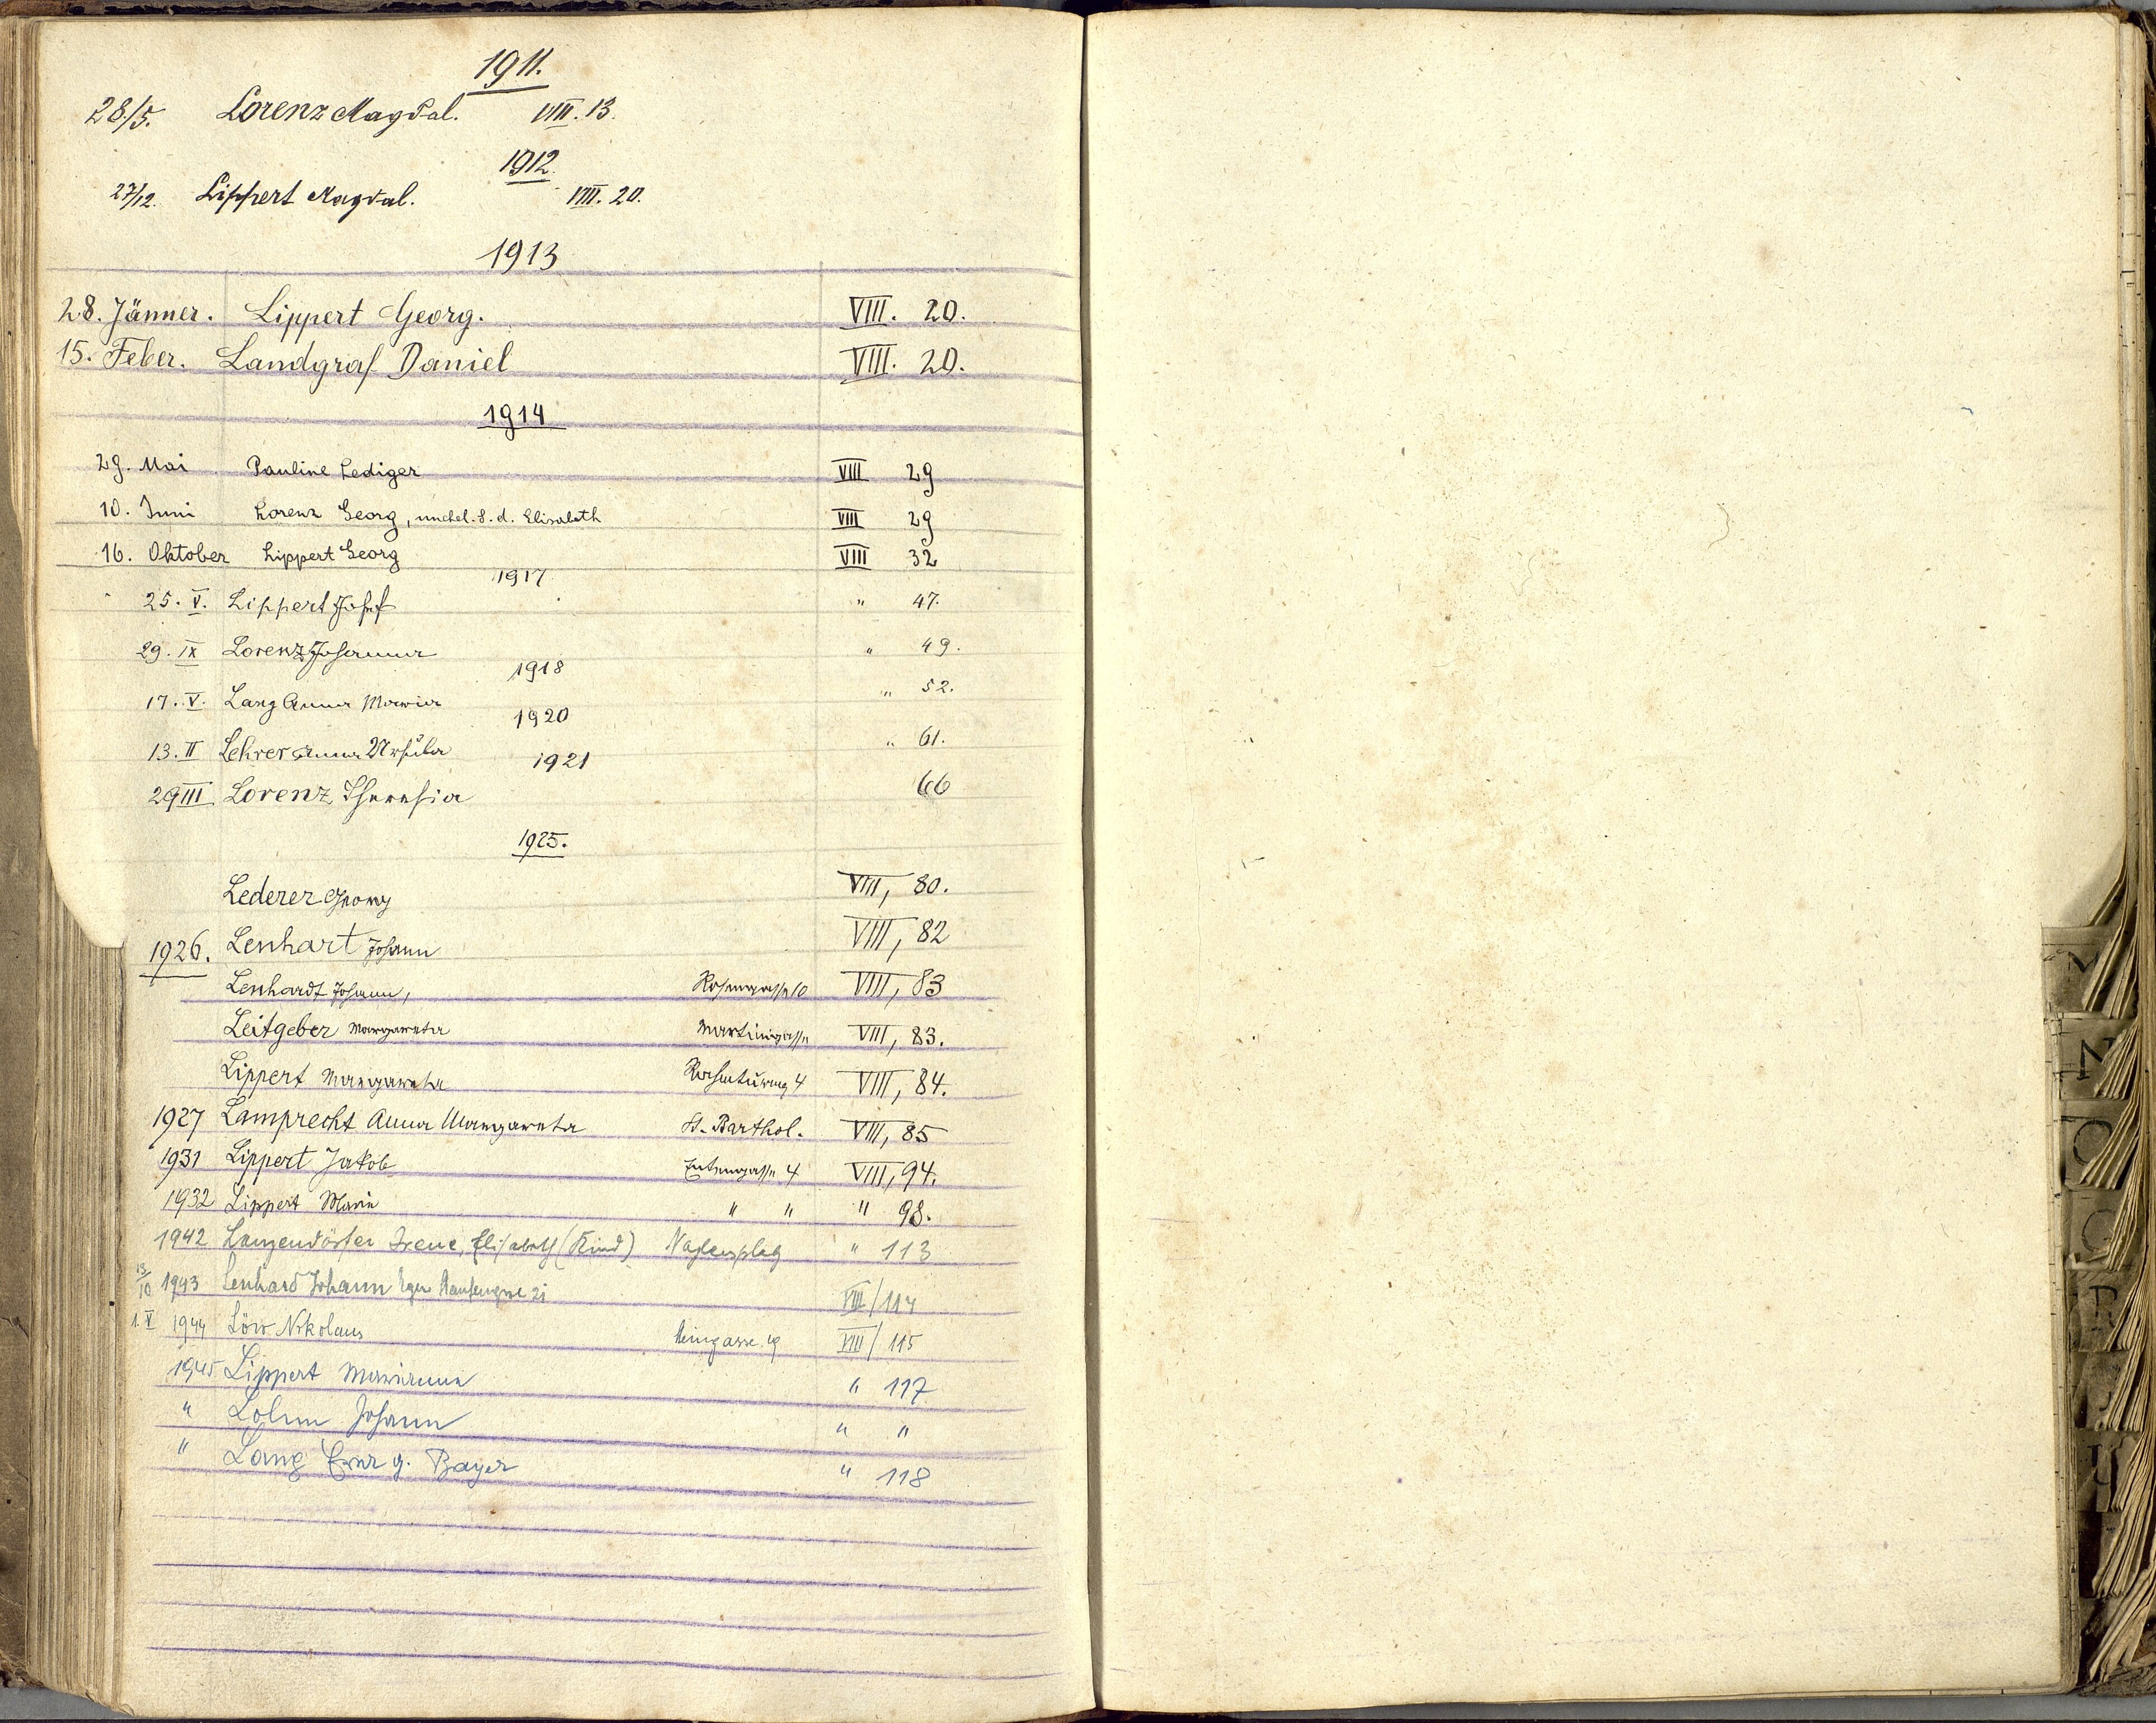 1911.
28./5. Lorenz Magdal. VIII. 13.
1912.
27/12. Lippert Magdal. VIII. 20.
1913
28. Jänner. Lippert Georg. VIII. 20.
15. Feber. Landgraf Daniel VIII. 20.
1914
29. Mai Pauline Lediger VIII 29
10. Juni Lorenz Georg, unehel. S. d. Elisabeth VIII 29
16. Oktober Lippert Georg VIII 32
1917
25. V. Lippert Josef " 47.
29. IX Lorenz Johanna " 49.
1918
17. V. Lang Anna Maria " 52.
1920
13. II Lehrer Anna Ursula " 61.
1921
29 III Lorenz Theresia 66
1925.
Lederer Georg VIII, 80.
1926. Lenhart Johann VIII, 82
Lenhardt Johann, Rosengasse 10 VIII, 83
Leitgeber Margareta Martinigasse VIII, 83.
Lippert Margareta 4 VIII, 84.
1927 Lamprecht Anna Margareta St. Barthol. VIII, 85
1931 Lippert Jakob Entengasse 4 VIII, 94.
1932 Lippert Marie " " " 98.
1942 Langendörfer Irene, Elisabeth (Kind) " 113
13/10 1943 Lenhard Johann Eger 21 VIII/114
1. V 1944 Löw Nikolaus VIII/115
1945 Lippert Marianna " 117
" Johann " "
" Lang g. Bayer " 118
M
N
O